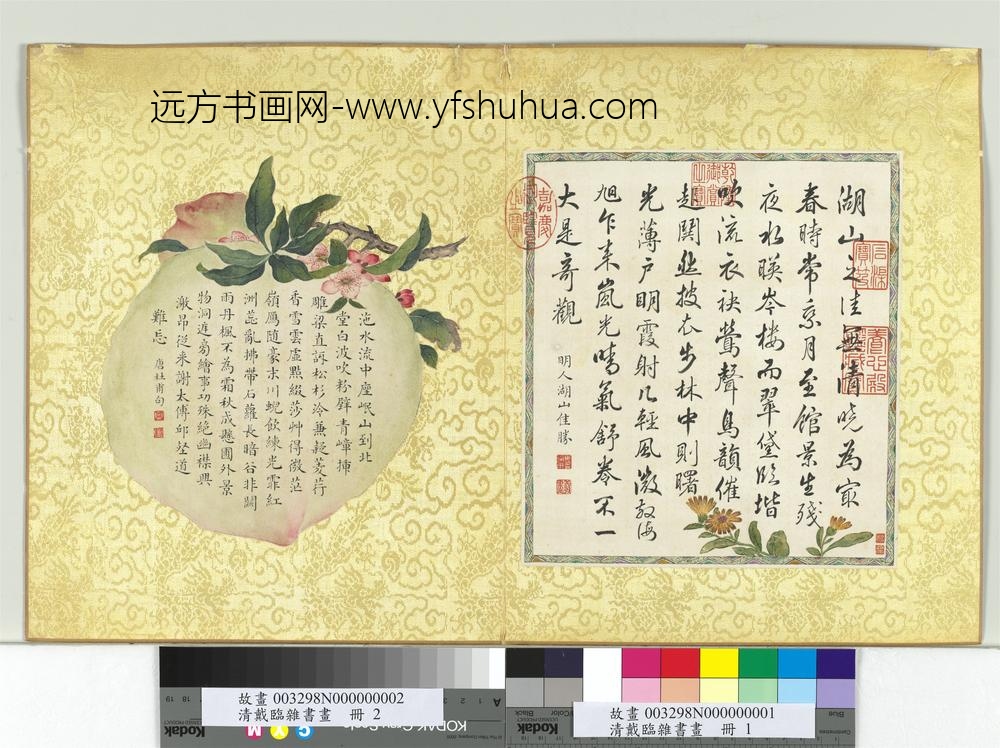 远方书画网-www.yfshuhua.com
湖山之佳無清曉為最
春時常乘月至館景生殘
夜水暎岑樓而翠黛臨堦
吹流衣袂鶯聲鳥韻催
起鬨然披衣步林中則曙
光薄戶明霞射几輕風微散海
旭乍来嵐光晴氣舒卷不一
大是奇觀
明人湖山佳勝
石渠寶笈
沱水流中座岷山到北
堂白波吹粉壁青嶂插
雕梁直訝松杉冷兼疑菱荇
香雪雲虛點綴莎艸得微茫
嶺鴈随豪末川蜺飲練光霏紅
洲蕊亂拂帶石蘿長暗谷非關
雨丹楓不為霜秋成懸圃外景
物洞庭旁繪事功殊絕幽襟興
激昂從来謝太傅邱壑道
難忘
唐杜甫句
故畫 003298N000000002
清戴臨雜書畫 冊 2
故畫 003298N000000001
清戴臨雜書畫 冊 1
Kodak
KODAK
Kodak
Black
Blue